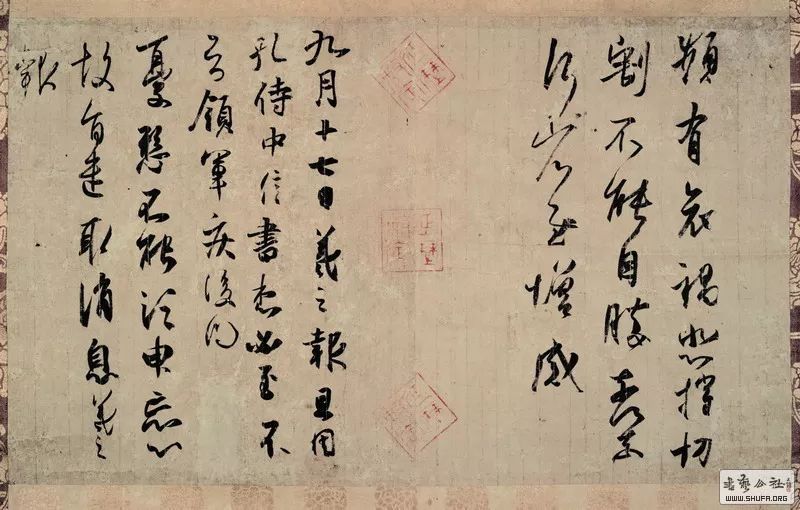 頻有哀禍悲摧切
割不能自勝奈何奈
何省慰增感
九月十七日羲之報且因
孔侍中信書想必至不
知領軍疾後問
憂懸不能須臾忘心
故旨遣取消息羲之
報
書藝公社
WWW.SHUFA.ORG